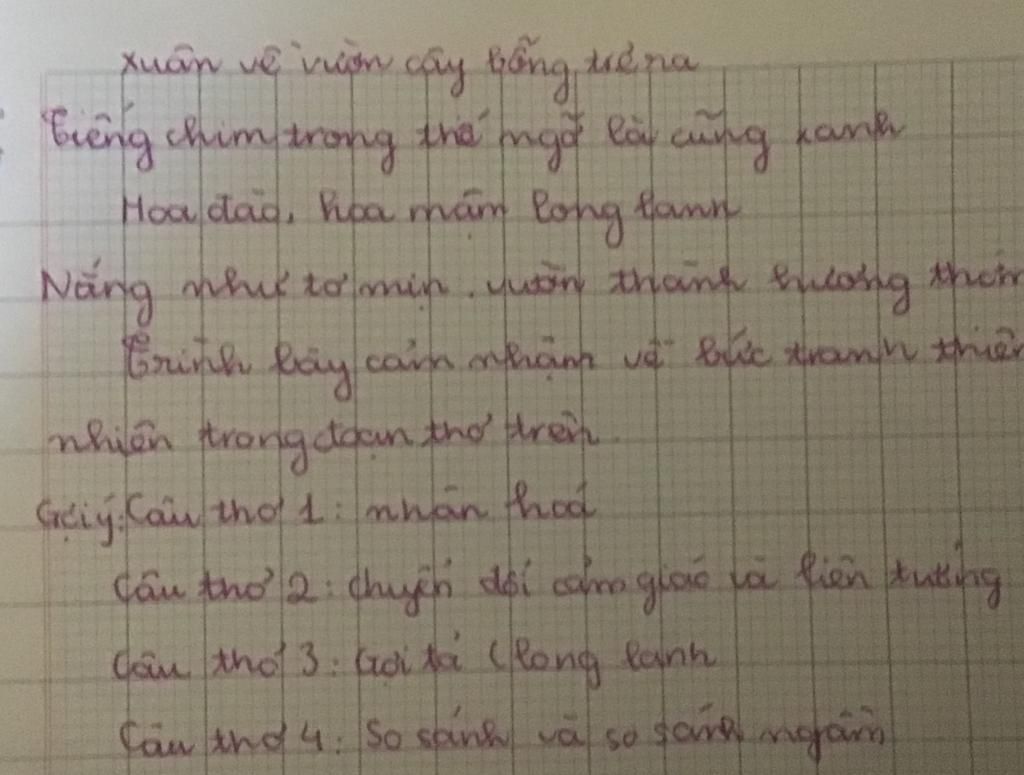 Xuân về vườn cây bỗng trẻ ra
Tiếng chim trong thế ngỡ là cũng xanh
Hoa đào, hoa mận long lanh
Nắng như tơ mịn, vườn thành hương thơm
Trình bày cảm nhận về bức tranh thiên
nhiên trong đoạn thơ trên
Gợi ý: Câu thơ 1: nhân hoá
Câu thơ 2: chuyển đổi cảm giác và liên tưởng
Câu thơ 3: Gợi tả (long lanh
Câu thơ 4: So sánh và so sánh ngầm